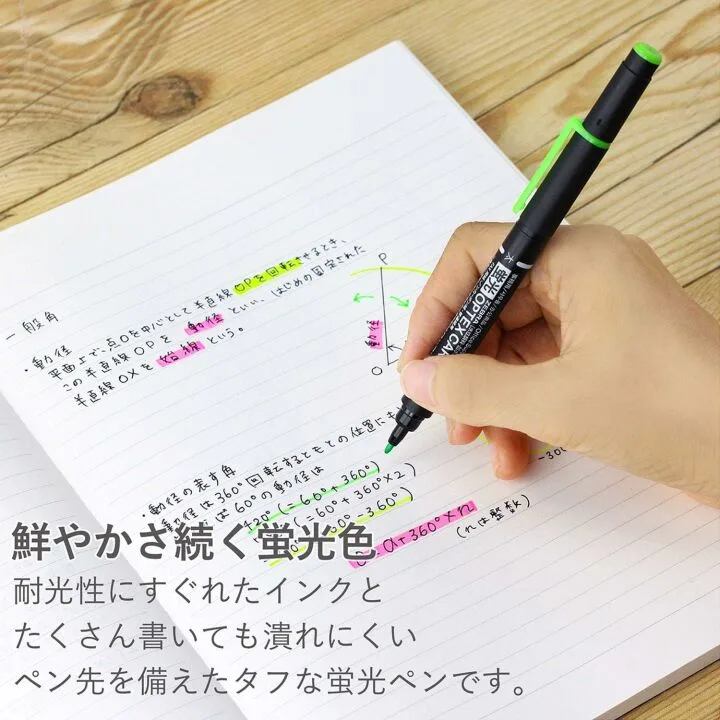 一般角
・動径
平面上で、点Oを中心として半直線OPを回転させるとき、
この半直線OPを動径といい、はじめの固定された
半直線OXを始線という。
P
動径
O
・動径の表す角
動径は360°回転するともとの位置に
60°の動径は
420° (=60°+360°)
(=60°+360°×2)
-360°)
α+360°×n
(nは整数)
太
蛍光 OPTEX CA
ZEBRA
鮮やかさ続く蛍光色
耐光性にすぐれたインクと
たくさん書いても潰れにくい
ペン先を備えたタフな蛍光ペンです。